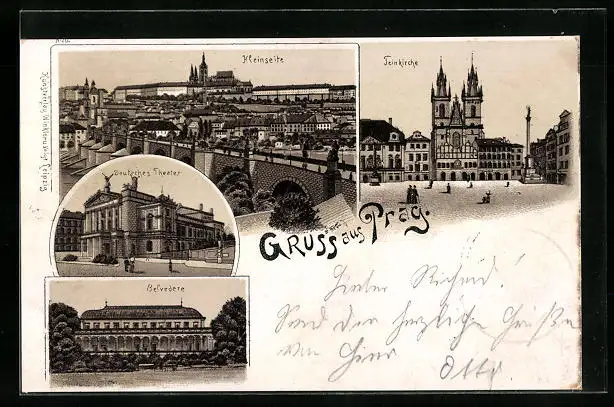 Kleinseite
Teinkirche
Deutsches Theater
Belvedere
Gruss aus Prag.
Lieber Richard!
Send dir herzliche Grüße
von hier Otto